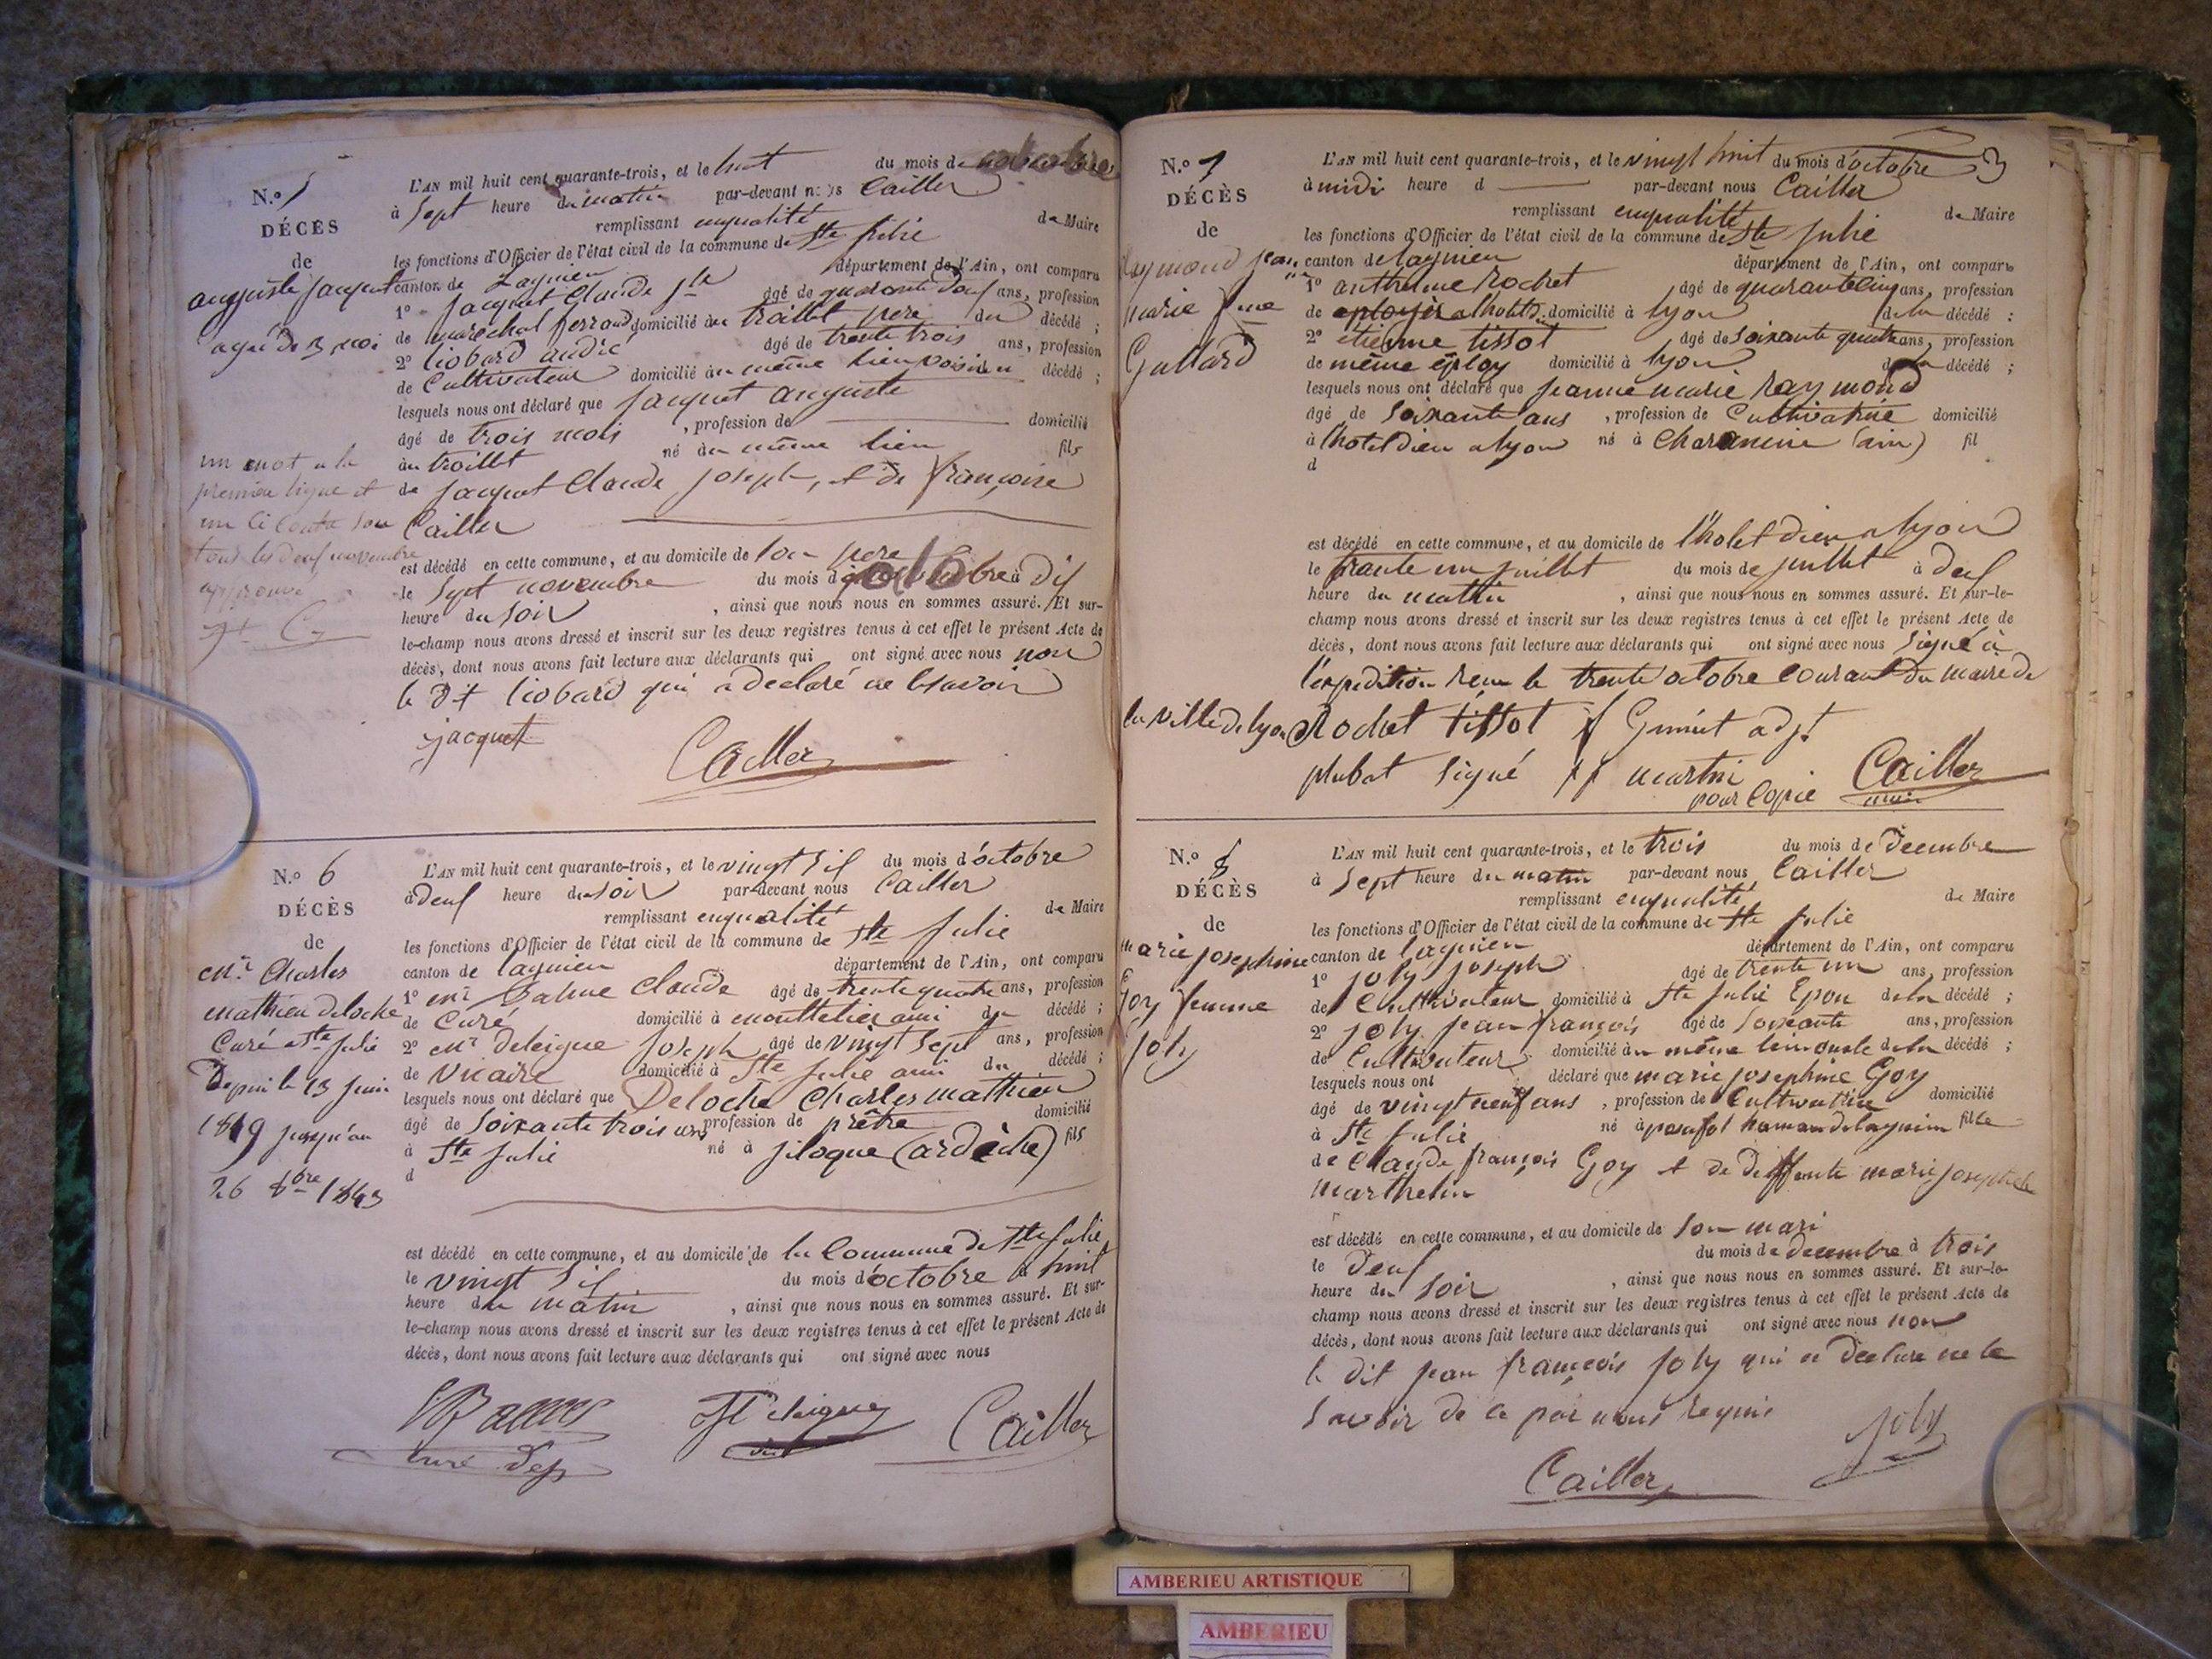 N.o 5
DÉCÈS
de
auguste jacquet
agé de 3 moi
un mot a la
première ligne et
approuvé
L'AN mil huit cent quarante-trois, et le huit du mois de octobre
à Sept heure du matin par-devant nous Cailler
remplissant enqualité de Maire
les fonctions d'Officier de l'état civil de la commune de Ste julie
canton de Lagnieu département de l'Ain, ont comparu
1o jacquet Claude jh âgé de quarante deux ans, profession
de maréchal ferrand domicilié au trollet pere du décédé ;
2o liobard andré âgé de trente trois ans, profession
de Cultivateur domicilié au même lieu voisin décédé ;
lesquels nous ont déclaré que jacquet auguste
âgé de trois mois , profession de domicilié
au trollet né au même lieu fils
de jacquet Claude joseph, et de françoise
Cailler
est décédé en cette commune, et au domicile de son pere
le Sept novembre du mois d octobre à dix
heure du soir , ainsi que nous nous en sommes assuré. Et sur-
le-champ nous avons dressé et inscrit sur les deux registres tenus à cet effet le présent Acte de
décès, dont nous avons fait lecture aux déclarants qui ont signé avec nous non
le dt liobard qui a declaré ne lesavoir
jacquet
Cailler
N.o 6
DÉCÈS
de
Mr Charles
mathieu deloche
Curé a Ste julie
Depui le 13 juin
1819 jusqu'au
26 8bre 1843
L'AN mil huit cent quarante-trois, et le vingt six du mois d'octobre
à deux heure du soir par-devant nous Cailler
remplissant enqualité de Maire
les fonctions d'Officier de l'état civil de la commune de Ste julie
canton de lagnieu département de l'Ain, ont comparu
1o Mr Claude âgé de trente quatre ans, profession
de Curé domicilié à ami du décédé ;
2o Mr deleigue joseph âgé de vingt sept ans, profession
de Vicaire domicilié à Ste julie ami du décédé ;
lesquels nous ont déclaré que Deloche Charles mathieu
âgé de soixante trois ans profession de prêtre domicilié
à Ste julie né à jiloque (ardèche) fils
d
est décédé en cette commune, et au domicile de la Commune de Ste julie
le vingt six du mois d'octobre à huit
heure du matin , ainsi que nous nous en sommes assuré. Et sur-
le-champ nous avons dressé et inscrit sur les deux registres tenus à cet effet le présent Acte de
décès, dont nous avons fait lecture aux déclarants qui ont signé avec nous
curé
Cailler
3
N.o 7
DÉCÈS
de
Raymond jean
marie fme
Gullard
L'AN mil huit cent quarante-trois, et le vingt huit du mois d'octobre
à midi heure d par-devant nous Cailler
remplissant enqualité de Maire
les fonctions d'Officier de l'état civil de la commune de Ste julie
canton de lagnieu département de l'Ain, ont comparu
1o anthelme Rochet âgé de quarantecinq ans, profession
de domicilié à lyon de la décédé ;
2o etienne tissot âgé de soixante quatre ans, profession
de même éploy domicilié à lyon de la décédé ;
lesquels nous ont déclaré que jeanne marie Raymond
âgé de Soixante ans , profession de Cultivatrice domicilié
à lhotel dieu a lyon né à Charancin (ain) fil
d
est décédé en cette commune, et au domicile de l'hotel dieu a lyon
le trante un juillet du mois de juillet à deux
heure du matin , ainsi que nous nous en sommes assuré. Et sur-le-
champ nous avons dressé et inscrit sur les deux registres tenus à cet effet le présent Acte de
décès, dont nous avons fait lecture aux déclarants qui ont signé avec nous Signé à
l'expedition reçu le trente octobre courant du maire de
la ville de lyon Rochet tissot adjt
signé martin
pour Copie Cailler
N.o 8
DÉCÈS
de
marie josephine
Goy femme
joly
L'AN mil huit cent quarante-trois, et le trois du mois de decembre
à Sept heure du matin par-devant nous Cailler
remplissant enqualité de Maire
les fonctions d'Officier de l'état civil de la commune de Ste julie
canton de lagnieu département de l'Ain, ont comparu
1o joly joseph âgé de trente un ans, profession
de Cultivateur domicilié à Ste julie Epou de la décédé ;
2o joly jean françois âgé de soixante ans, profession
de Cultivateur domicilié au même lieu oncle de la décédé ;
lesquels nous ont déclaré que marie josephine Goy
âgé de vingt neuf ans , profession de Cultivatrice domicilié
à Ste julie né à hamau de lagnieu fille
de Claude françois Goy et de deffunte marie josephete
Marthelin
est décédé en cette commune, et au domicile de son mari
le Deux du mois de decembre à trois
heure du soir , ainsi que nous nous en sommes assuré. Et sur-le-
champ nous avons dressé et inscrit sur les deux registres tenus à cet effet le présent Acte de
décès, dont nous avons fait lecture aux déclarants qui ont signé avec nous non
le dit jean françois joly qui a declare ne le
savoir de ce par nous requis
joly
Cailler
AMBERIEU ARTISTIQUE
AMBERIEU